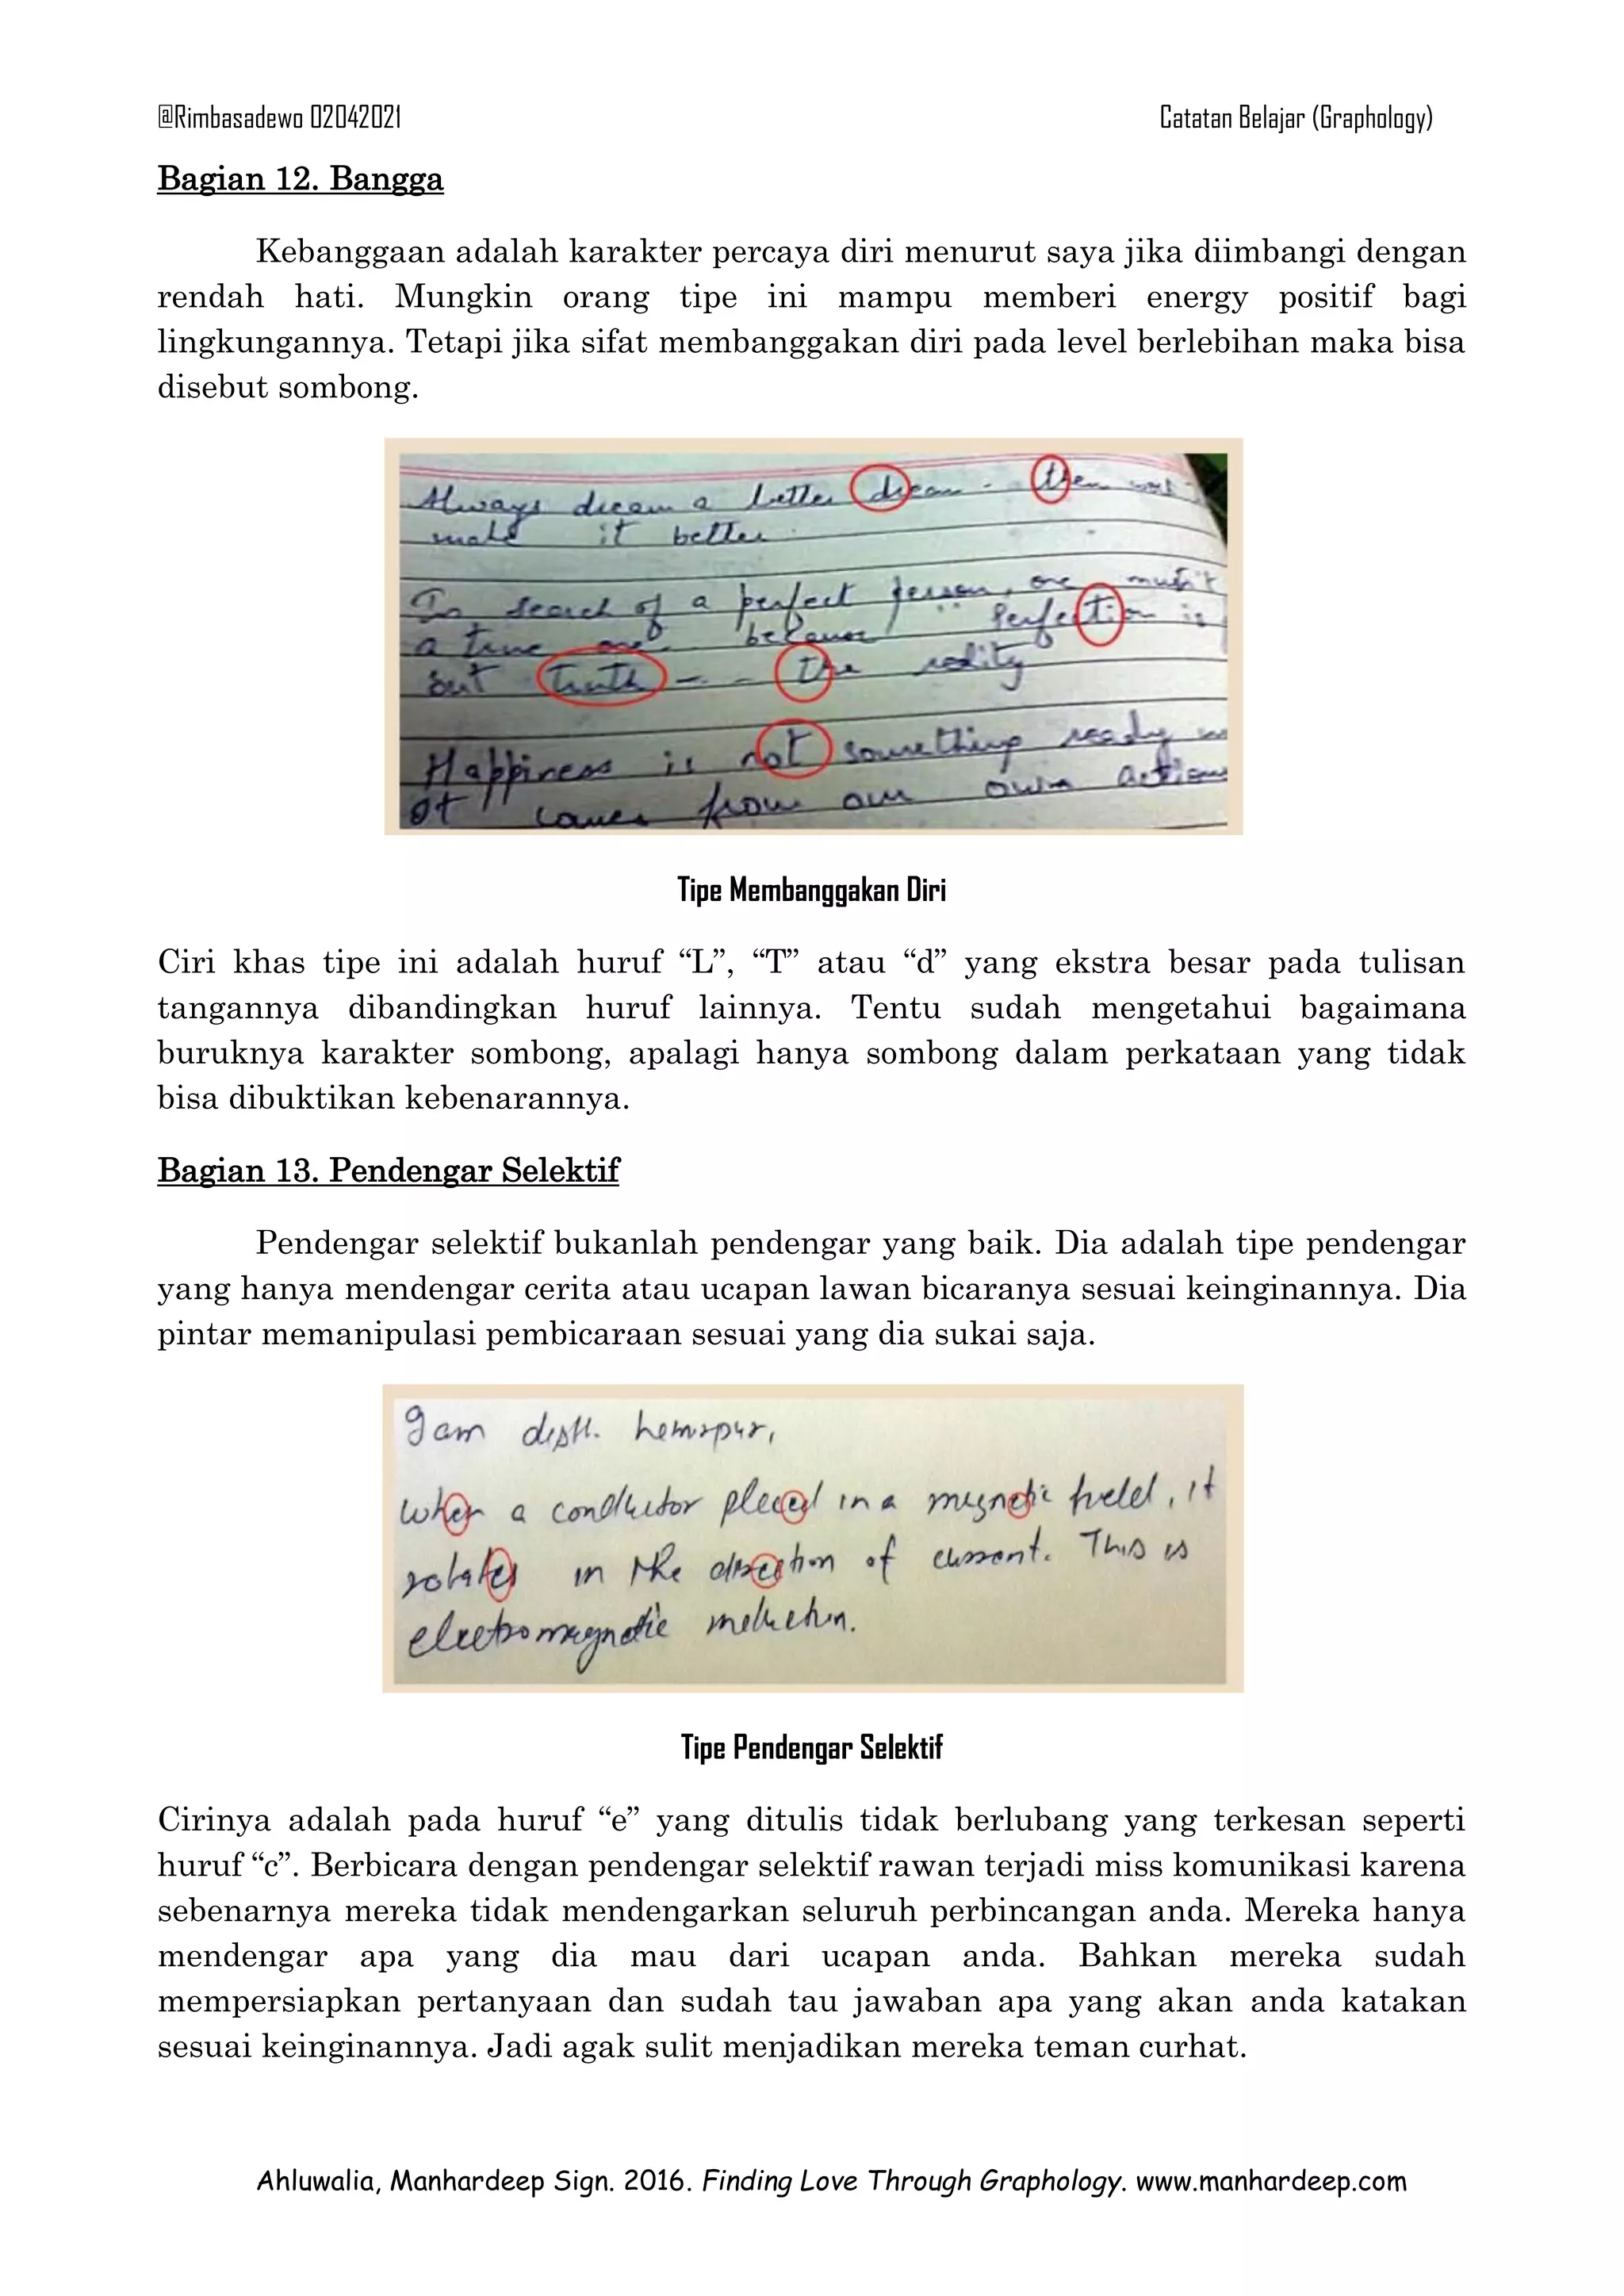 @Rimbasadewo 02042021 Catatan Belajar (Graphology)
Bagian 12. Bangga
Kebanggaan adalah karakter percaya diri menurut saya jika diimbangi dengan
rendah hati. Mungkin orang tipe ini mampu memberi energy positif bagi
lingkungannya. Tetapi jika sifat membanggakan diri pada level berlebihan maka bisa
disebut sombong.
Always dream a better dream . then
make it better
In search of a perfect person, one mustn't
a true one because Perfection is
but truth - - the reality
Happiness is not something ready
It comes from our own actions
Tipe Membanggakan Diri
Ciri khas tipe ini adalah huruf “L”, “T” atau “d” yang ekstra besar pada tulisan
tangannya dibandingkan huruf lainnya. Tentu sudah mengetahui bagaimana
buruknya karakter sombong, apalagi hanya sombong dalam perkataan yang tidak
bisa dibuktikan kebenarannya.
Bagian 13. Pendengar Selektif
Pendengar selektif bukanlah pendengar yang baik. Dia adalah tipe pendengar
yang hanya mendengar cerita atau ucapan lawan bicaranya sesuai keinginannya. Dia
pintar memanipulasi pembicaraan sesuai yang dia sukai saja.
I am distt. hamirpur,
when a conductor placed in a magnetic field, it
rotates in the direction of current. This is
electromagnetic induction.
Tipe Pendengar Selektif
Cirinya adalah pada huruf “e” yang ditulis tidak berlubang yang terkesan seperti
huruf “c”. Berbicara dengan pendengar selektif rawan terjadi miss komunikasi karena
sebenarnya mereka tidak mendengarkan seluruh perbincangan anda. Mereka hanya
mendengar apa yang dia mau dari ucapan anda. Bahkan mereka sudah
mempersiapkan pertanyaan dan sudah tau jawaban apa yang akan anda katakan
sesuai keinginannya. Jadi agak sulit menjadikan mereka teman curhat.
Ahluwalia, Manhardeep Sign. 2016. Finding Love Through Graphology. www.manhardeep.com